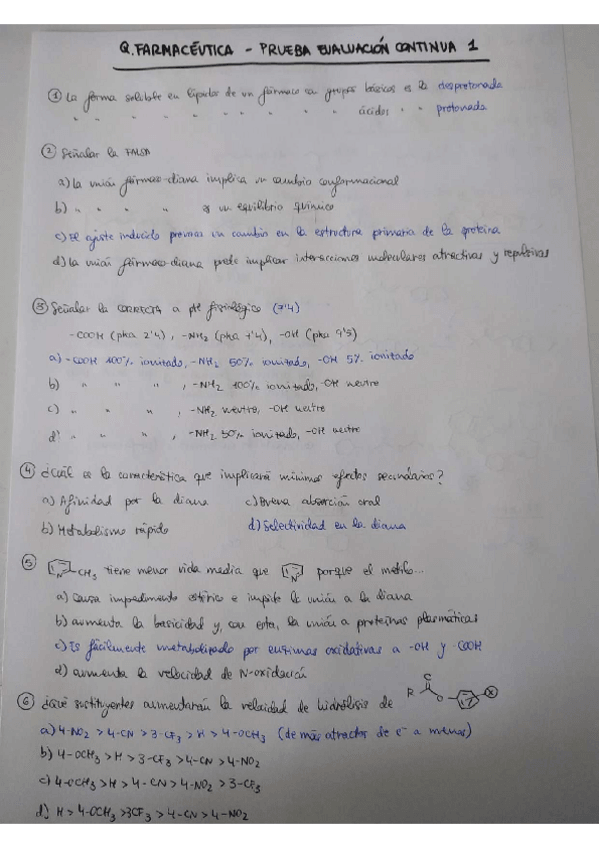 Q. FARMACÉUTICA - PRUEBA EVALUACIÓN CONTINUA 1
① La forma soluble en lípidos de un fármaco con grupos básicos es la desprotonada
" " " " " " " " " ácidos " " protonada
② Señalar la FALSA
a) La unión fármaco-diana implica un cambio conformacional
b) " " " " es un equilibrio químico
c) El ajuste inducido provoca un cambio en la estructura primaria de la proteína
d) La unión fármaco-diana puede implicar interacciones moleculares atractivas y repulsivas
③ Señalar la CORRECTA a pH fisiológico (7'4)
-COOH (pka 2'4), -NH2 (pka 7'4), -OH (pka 9'5)
a) -COOH 100% ionizado, -NH2 50% ionizado, -OH 5% ionizado
b) " " " , -NH2 100% ionizado, -OH neutro
c) " " " , -NH2 neutro, -OH neutro
d) " " " , -NH2 50% ionizado, -OH neutro
④ ¿Cuál es la característica que implicará mínimos efectos secundarios?
a) Afinidad por la diana c) Buena absorción oral
b) Metabolismo rápido d) Selectividad en la diana
⑤ N CH3 tiene menor vida media que N porque el metilo...
a) Causa impedimento estérico e impide la unión a la diana
b) aumenta la basicidad y, con esta, la unión a proteínas plasmáticas
c) Es fácilmente metabolizado por enzimas oxidativas a -OH y -COOH
d) aumenta la velocidad de N-oxidación
⑥ ¿Qué sustituyentes aumentarán la velocidad de hidrólisis de R O X
a) 4-NO2 > 4-CN > 3-CF3 > H > 4-OCH3 (de más atractor de e- a menos)
b) 4-OCH3 > H > 3-CF3 > 4-CN > 4-NO2
c) 4-OCH3 > H > 4-CN > 4-NO2 > 3-CF3
d) H > 4-OCH3 > 3CF3 > 4-CN > 4-NO2